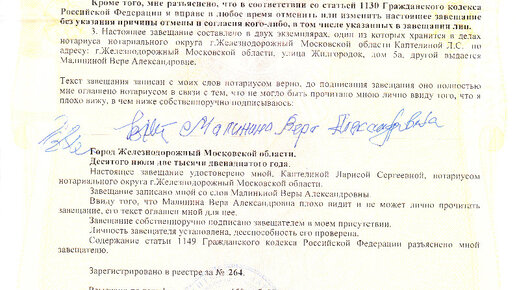 Кроме того, мне разъяснено, что в соответствии со статьей 1130 Гражданского кодекса
Российской Федерации я вправе в любое время отменить или изменить настоящее завещание
без указания причины отмены и согласия кого-либо, в том числе указанных в завещании лиц.
3. Настоящее завещание составлено в двух экземплярах, один из которых хранится в делах
нотариуса нотариального округа г.Железнодорожный Московской области Каптелиной Л.С. по
адресу: г.Железнодорожный Московской области, улица Жилгородок, дом 5а, другой выдается
Малининой Вере Александровне.
Текст завещания записан с моих слов нотариусом верно, до подписания завещания оно полностью
мне оглашено нотариусом в связи с тем, что не могло быть прочитано мною лично ввиду того, что я
плохо вижу, в чем ниже собственноручно подписываюсь:
Малинина Вера Александровна
Город Железнодорожный Московской области.
Десятого июля две тысячи двенадцатого года.
Настоящее завещание удостоверено мной, Каптелиной Ларисой Сергеевной, нотариусом
нотариального округа г.Железнодорожный Московской области.
Завещание записано мной со слов Малининой Веры Александровны.
Ввиду того, что Малинина Вера Александровна плохо видит и не может лично прочитать
завещание, его текст оглашен мной для нее.
Завещание собственноручно подписано завещателем в моем присутствии.
Личность завещателя установлена, дееспособность его проверена.
Содержание статьи 1149 Гражданского кодекса Российской Федерации разъяснено мной
завещателю.
Зарегистрировано в реестре за № 264.